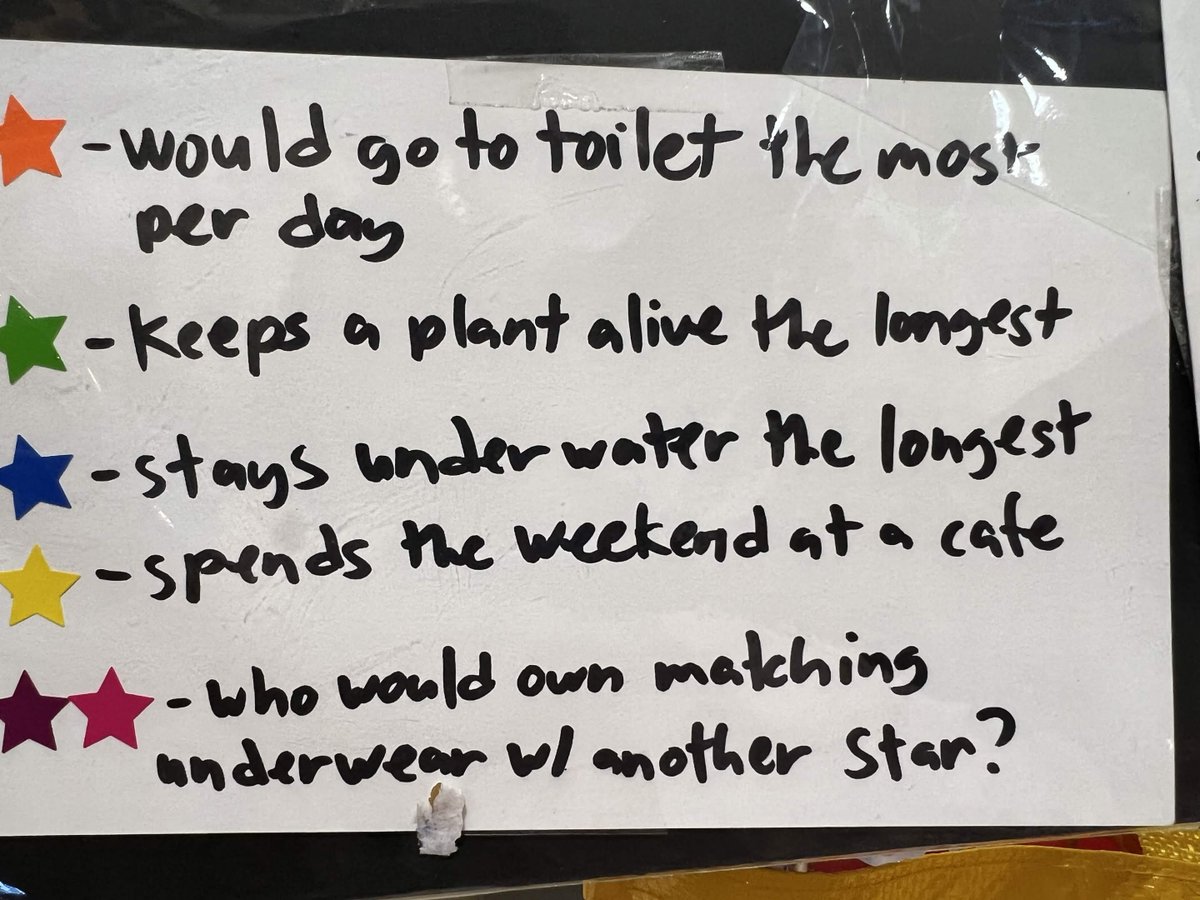 - would go to toilet the most
per day
- keeps a plant alive the longest
- stays under water the longest
- spends the weekend at a cafe
- who would own matching
underwear w/ another star?